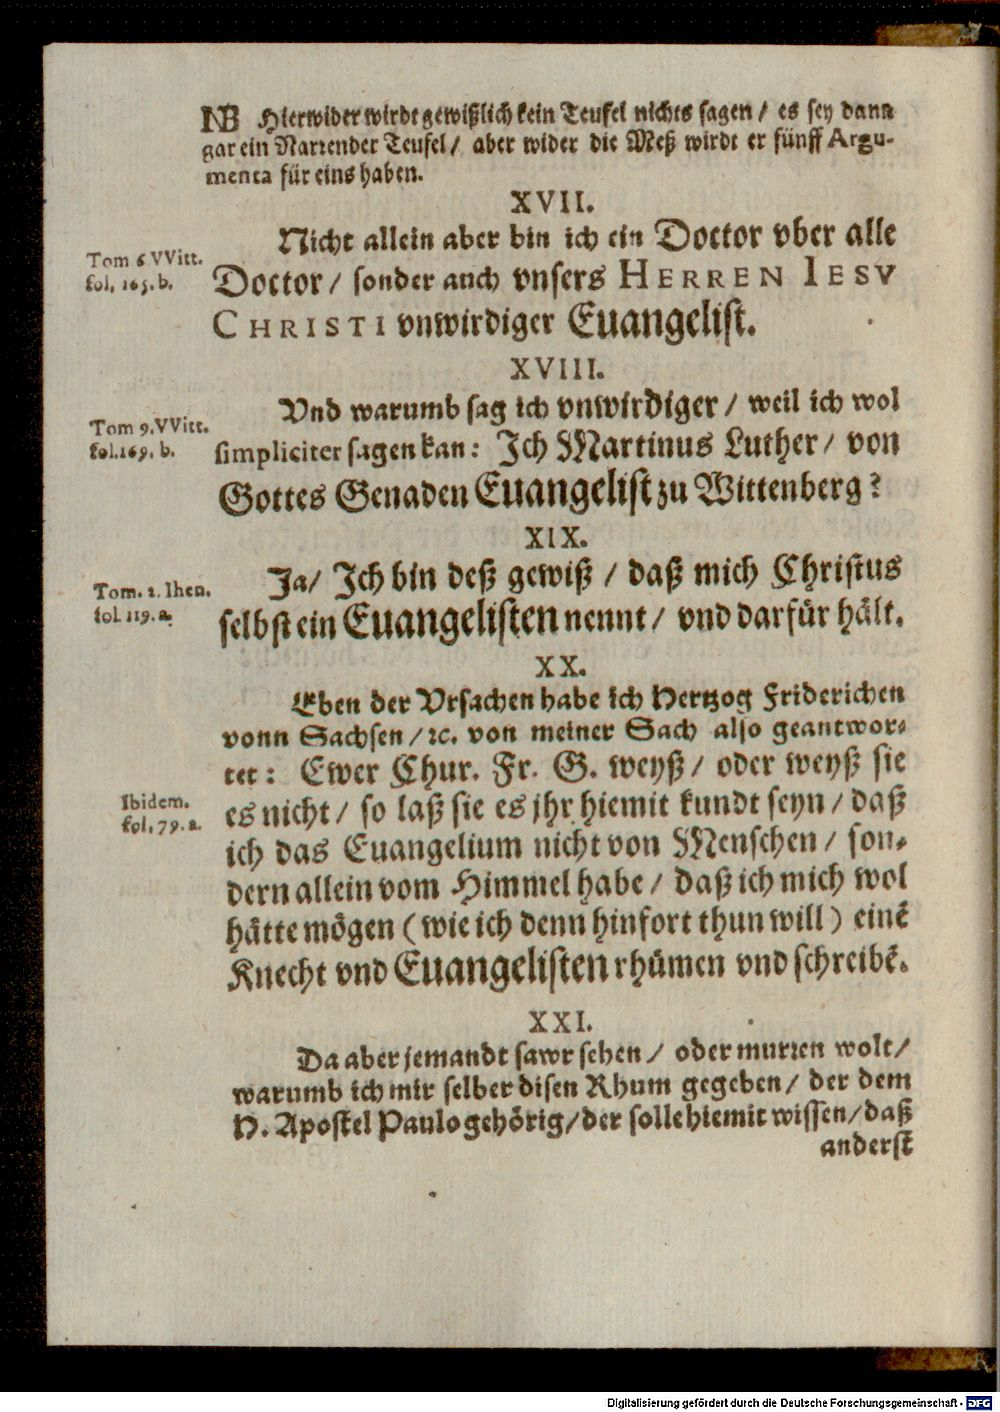 NB Hierwider wirdt gewißlich kein Teufel nichts sagen / es sey dann
gar ein Narrender Teufel / aber wider die Meß wirdt er fünff Argu-
menta für eins haben.
XVII.
Tom 6 VVitt.
fol. 165. b.
Nicht allein aber bin ich ein Doctor vber alle
Doctor / sonder auch vnsers HERREN IESV
CHRISTI vnwirdiger Euangelist.
XVIII.
Tom 9. VVitt.
fol. 169. b.
Vnd warumb sag ich vnwirdiger / weil ich wol
simpliciter sagen kan: Ich Martinus Luther / von
Gottes Genaden Euangelist zu Wittenberg?
XIX.
Tom. 2. Ihen.
fol 119. a.
Ja / Ich bin deß gewiß / daß mich Christus
selbst ein Euangelisten nennt / vnd darfür hält.
XX.
Eben der Vrsachen habe ich Hertzog Friderichen
vonn Sachsen / ꝛc. von meiner Sach also geantwor-
tet: Ewer Chur. Fr. G. weyß / oder weyß sie
Ibidem.
fol. 79. a.
es nicht / so laß sie es jhr hiemit kundt seyn / daß
ich das Euangelium nicht von Menschen / son-
dern allein vom Himmel habe / daß ich mich wol
hätte mögen (wie ich denn hinfort thun will) einẽ
Knecht vnd Euangelisten rhümen vnd schreibẽ.
XXI.
Da aber jemandt sawr sehen / oder murren wolt /
warumb ich mir selber disen Rhum gegeben / der dem
H. Apostel Paulo gehörig / der solle hiemit wissen / daß
anderst
Digitalisierung gefördert durch die Deutsche Forschungsgemeinschaft - DFG